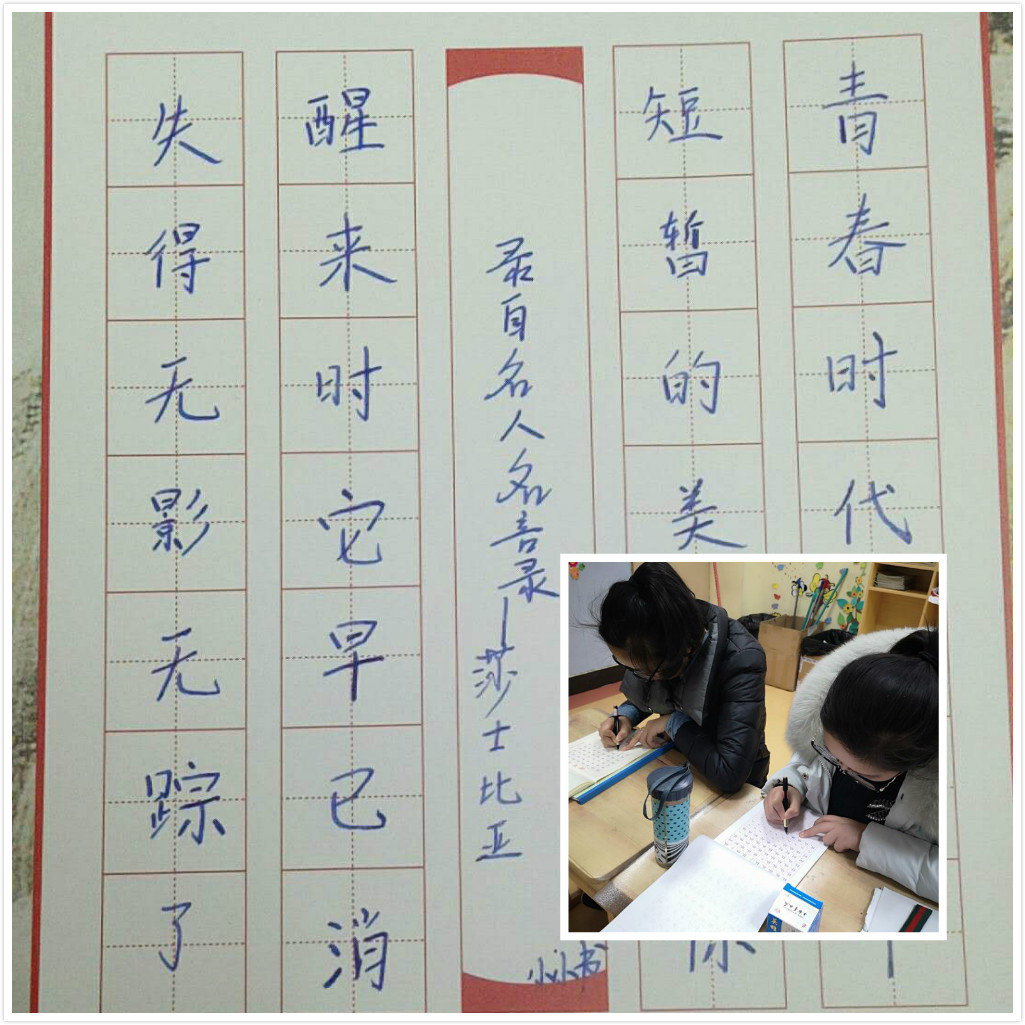 青春时代
短暂的美
录自名人名言录—莎士比亚
小小书
醒来时它早已消
失得无影无踪了